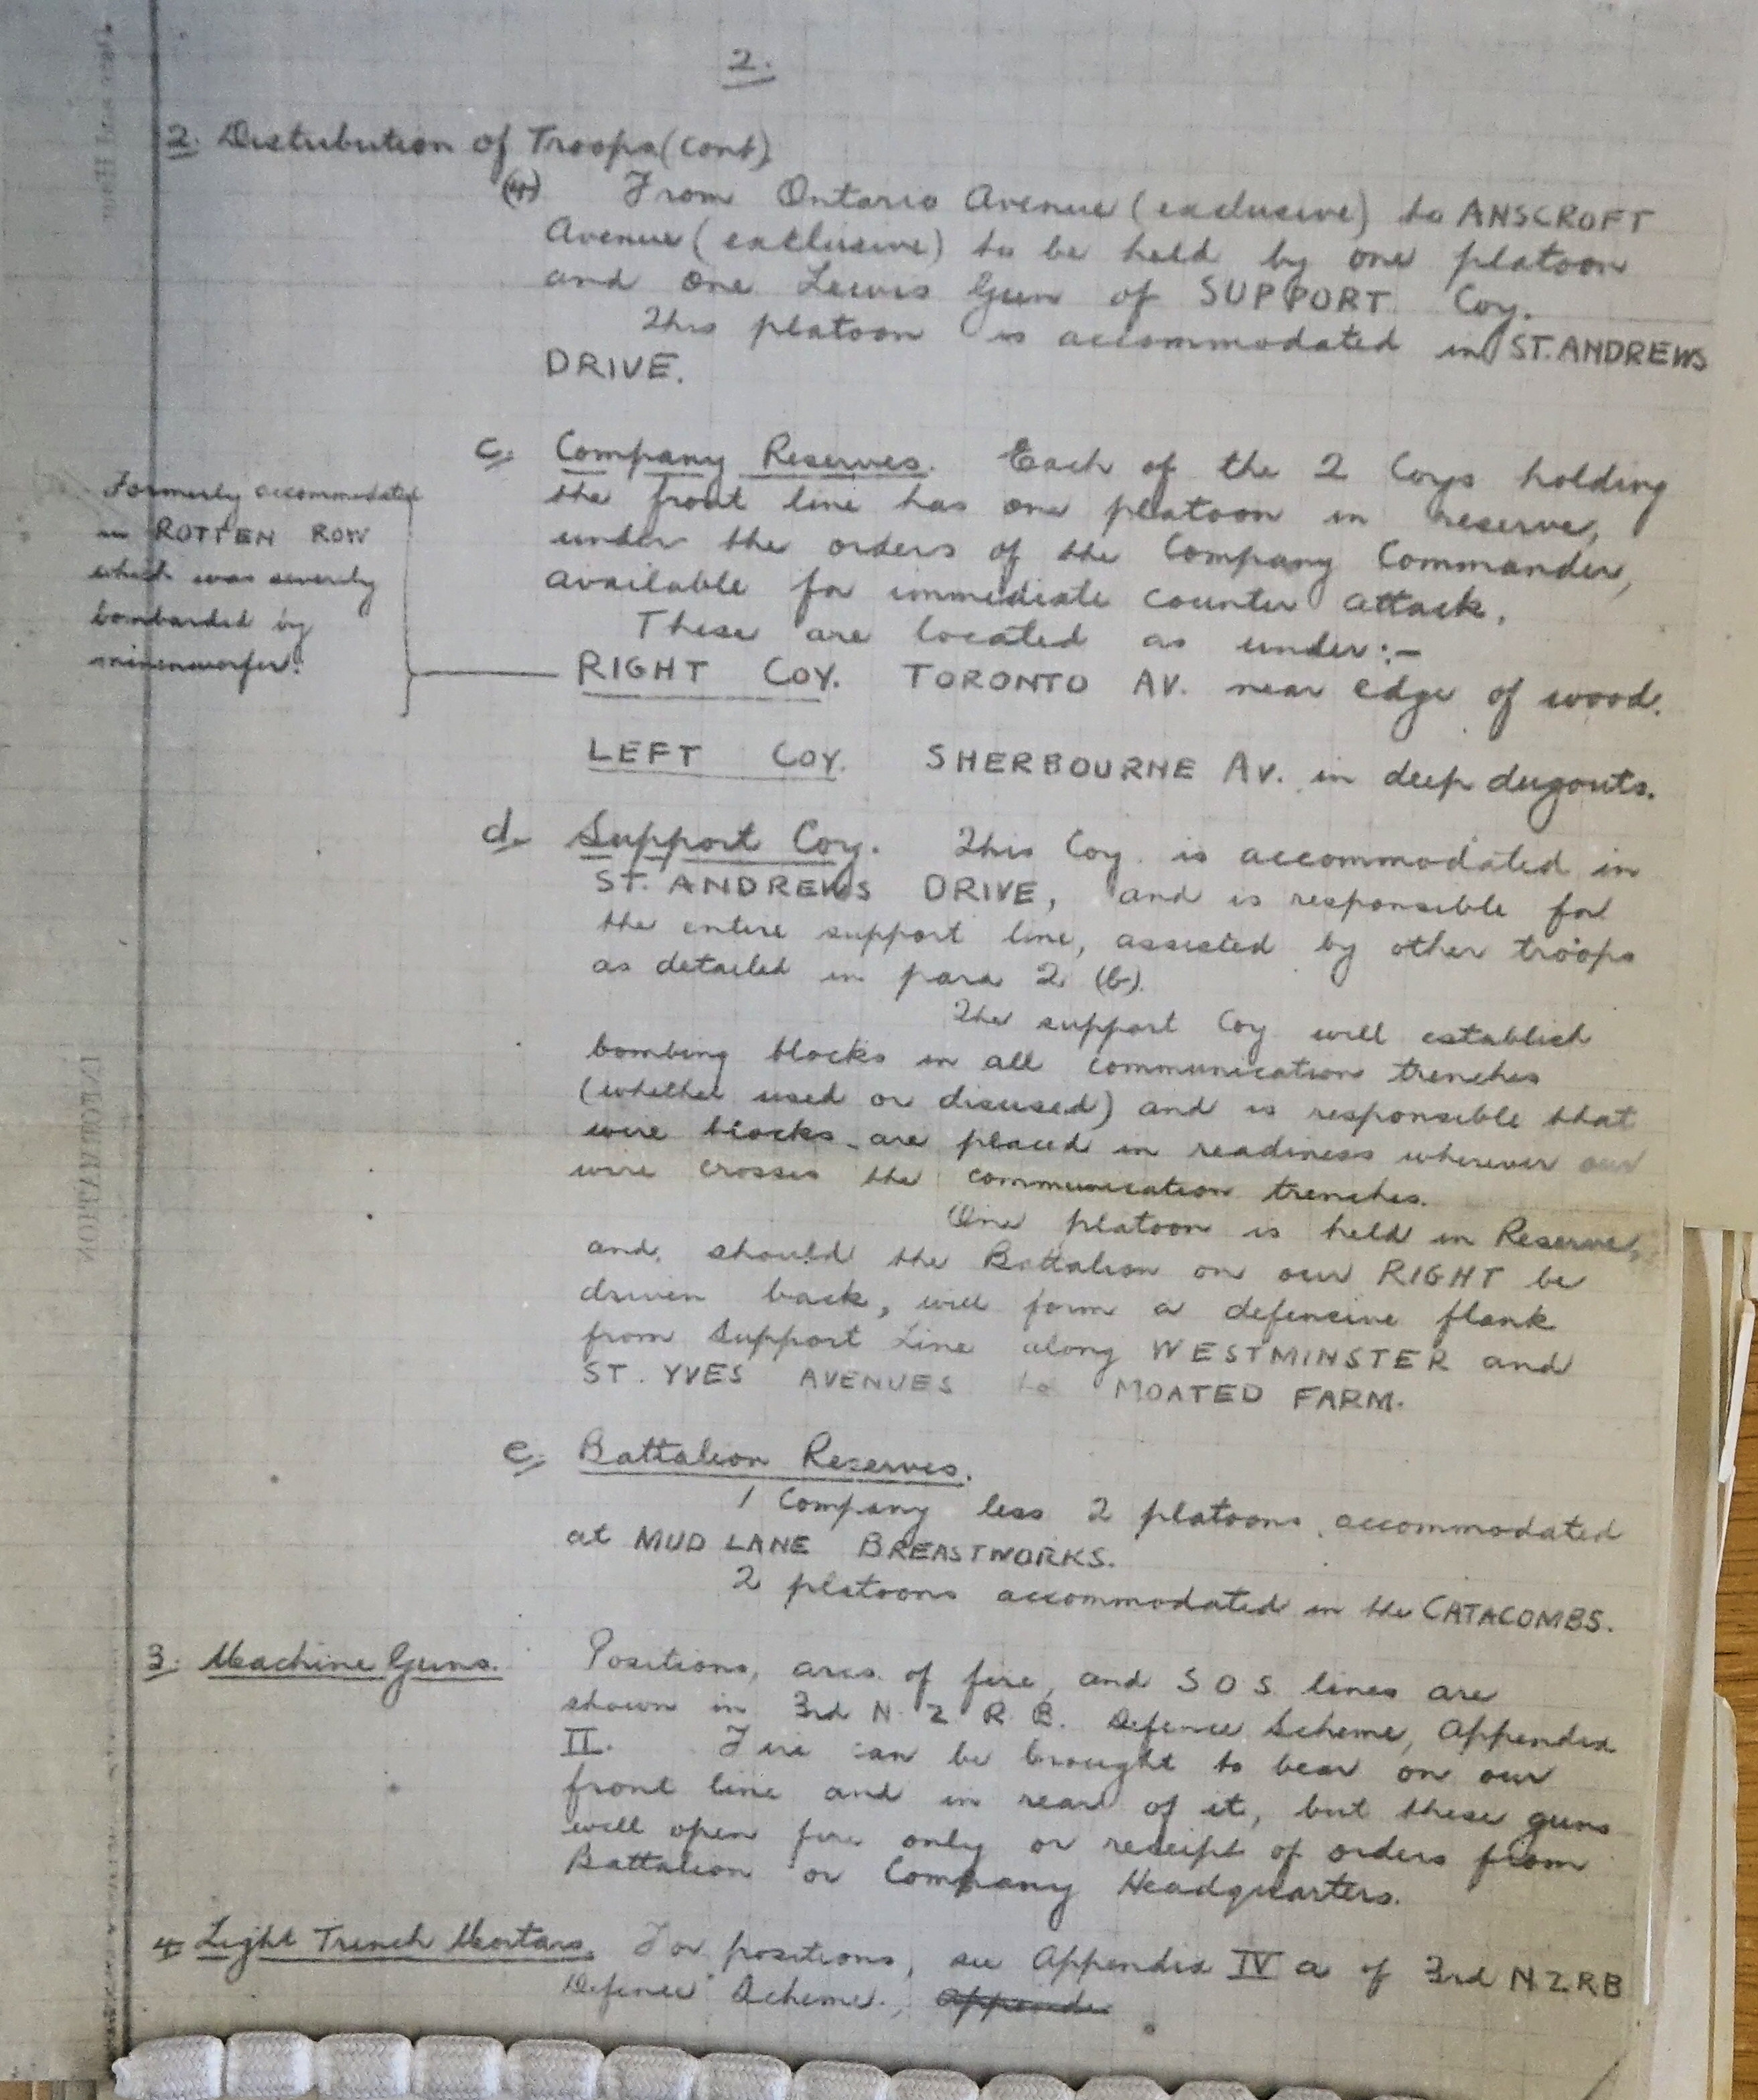 2.
2. Distribution of Troops (cont)
(4) From Ontario Avenue (exclusive) to ANSCROFT
Avenue (exclusive) to be held by one platoon
and one Lewis Gun of SUPPORT Coy.
This platoon is accommodated in ST. ANDREWS
DRIVE.
c. Company Reserves. Each of the 2 Coys holding
the front line has one platoon in reserve,
under the orders of the Company Commander,
available for immediate counter attack.
These are located as under:-
Formerly accommodated
in ROTTEN ROW
which was severely
bombarded by
minenwerfer.
RIGHT COY. TORONTO AV. near edge of wood.
LEFT COY. SHERBOURNE AV. in deep dugouts.
d. Support Coy. This Coy. is accommodated in
ST. ANDREWS DRIVE, and is responsible for
the entire support line, assisted by other troops
as detailed in para 2 (b).
The support Coy will establish
bombing blocks in all communication trenches
(whether used or disused) and is responsible that
wire blocks are placed in readiness wherever our
wire crosses the communication trenches.
One platoon is held in Reserve,
and, should the Battalion on our RIGHT be
driven back, will form a defensive flank
from Support Line along WESTMINSTER and
ST. YVES AVENUES to MOATED FARM.
e. Battalion Reserves.
1 Company less 2 platoons accommodated
at MUD LANE BREASTWORKS.
2 platoons accommodated in the CATACOMBS.
3. Machine Guns. Positions, arcs of fire, and S O S lines are
shown in 3rd N. Z. R. B. Defence Scheme, Appendix
II. Fire can be brought to bear on our
front line and in rear of it, but these guns
will open fire only on receipt of orders from
Battalion or Company Headquarters.
4 Light Trench Mortars. For positions, see Appendix IV a of 3rd N Z R B
Defence Scheme., Appendix